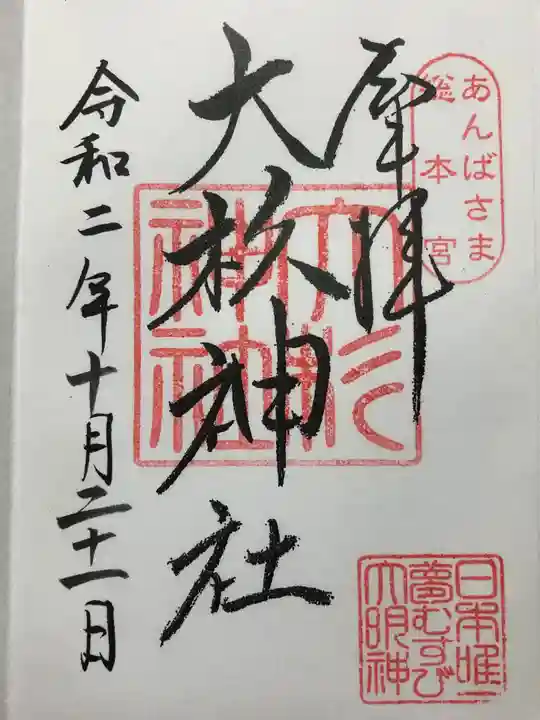 あんばさま
総本宮
奉拝
大杉神社
大杉
神社
令和二年十月二十一日
日本唯一
夢むすび
大明神